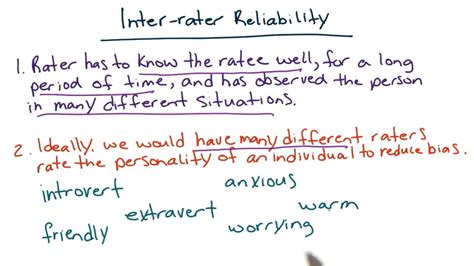 Inter-rater Reliability
1. Rater has to know the ratee well, for a long
period of time, and has observed the person
in many different situations.
2. Ideally, we would have many different raters
rate the personality of an individual to reduce bias.
introvert anxious
extravert warm
friendly worrying